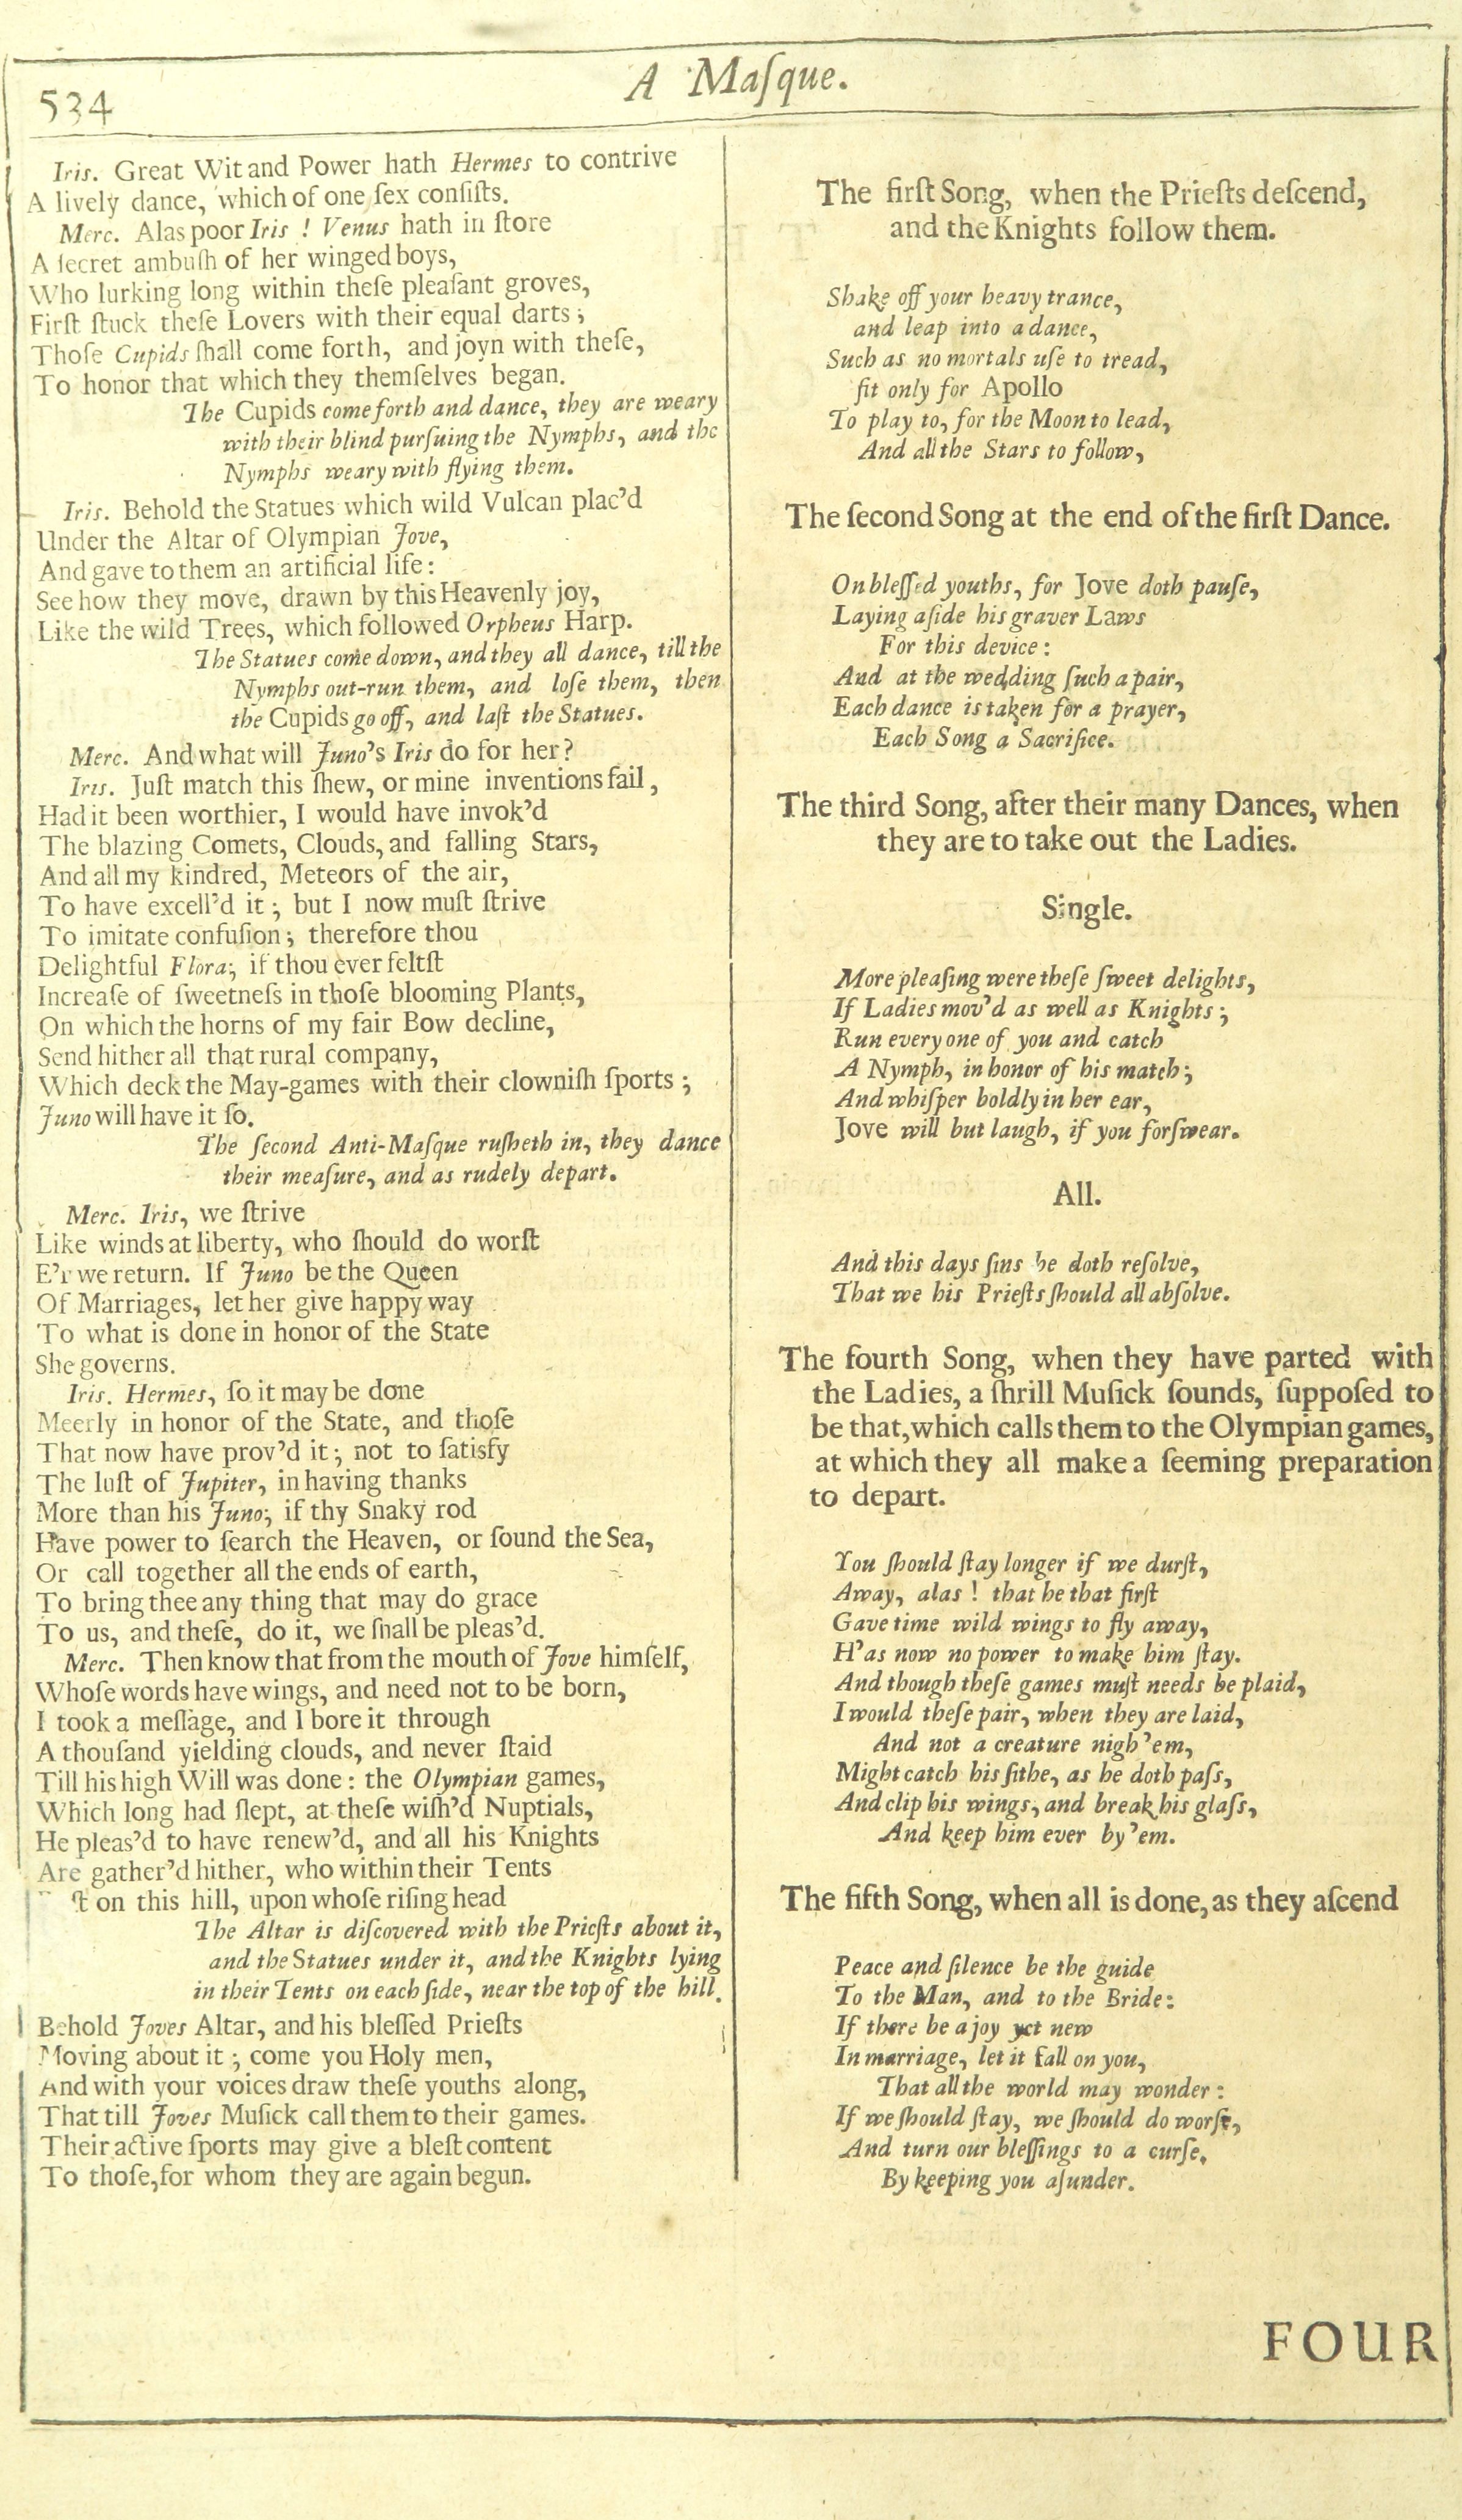 534
A Maſque.
Iris. Great Wit and Power hath Hermes to contrive
A lively dance, which of one ſex conſiſts.
Merc. Alas poor Iris ! Venus hath in ſtore
A ſecret ambuſh of her winged boys,
Who lurking long within theſe pleaſant groves,
Firſt ſtuck theſe Lovers with their equal darts ;
Thoſe Cupids ſhall come forth, and joyn with theſe,
To honor that which they themſelves began.
The Cupids come forth and dance, they are weary
with their blind purſuing the Nymphs, and the
Nymphs weary with flying them.
Iris. Behold the Statues which wild Vulcan plac'd
Under the Altar of Olympian Jove,
And gave to them an artificial life :
See how they move, drawn by this Heavenly joy,
Like the wild Trees, which followed Orpheus Harp.
The Statues come down, and they all dance, till the
Nymphs out-run them, and loſe them, then
the Cupids go off, and laſt the Statues.
Merc. And what will Juno's Iris do for her?
Iris. Juſt match this ſhew, or mine inventions fail,
Had it been worthier, I would have invok'd
The blazing Comets, Clouds, and falling Stars,
And all my kindred, Meteors of the air,
To have excell'd it ; but I now muſt ſtrive
To imitate confuſion ; therefore thou
Delightful Flora; if thou ever feltſt
Increaſe of ſweetneſs in thoſe blooming Plants,
On which the horns of my fair Bow decline,
Send hither all that rural company,
Which deck the May-games with their clowniſh ſports ;
Juno will have it ſo.
The ſecond Anti-Maſque ruſheth in, they dance
their meaſure, and as rudely depart.
Merc. Iris, we ſtrive
Like winds at liberty, who ſhould do worſt
E'r we return. If Juno be the Queen
Of Marriages, let her give happy way
To what is done in honor of the State
She governs.
Iris. Hermes, ſo it may be done
Meerly in honor of the State, and thoſe
That now have prov'd it ; not to ſatisfy
The luſt of Jupiter, in having thanks
More than his Juno; if thy Snaky rod
Have power to ſearch the Heaven, or ſound the Sea,
Or call together all the ends of earth,
To bring thee any thing that may do grace
To us, and theſe, do it, we ſhall be pleas'd.
Merc. Then know that from the mouth of Jove himſelf,
Whoſe words have wings, and need not to be born,
I took a meſſage, and I bore it through
A thouſand yielding clouds, and never ſtaid
Till his high Will was done : the Olympian games,
Which long had ſlept, at theſe wiſh'd Nuptials,
He pleas'd to have renew'd, and all his Knights
Are gather'd hither, who within their Tents
on this hill, upon whoſe riſing head
The Altar is diſcovered with the Prieſts about it,
and the Statues under it, and the Knights lying
in their Tents on each ſide, near the top of the hill.
Behold Joves Altar, and his bleſſed Prieſts
Moving about it ; come you Holy men,
And with your voices draw theſe youths along,
That till Joves Muſick call them to their games.
Their active ſports may give a bleſt content
To thoſe, for whom they are again begun.
The firſt Song, when the Prieſts deſcend,
and the Knights follow them.
Shake off your heavy trance,
and leap into a dance,
Such as no mortals uſe to tread,
fit only for Apollo
To play to, for the Moon to lead,
And all the Stars to follow,
The ſecond Song at the end of the firſt Dance.
On bleſſed youths, for Jove doth pauſe,
Laying aſide his graver Laws
For this device :
And at the wedding ſuch a pair,
Each dance is taken for a prayer,
Each Song a Sacrifice.
The third Song, after their many Dances, when
they are to take out the Ladies.
Single.
More pleaſing were theſe ſweet delights,
If Ladies mov'd as well as Knights ;
Run every one of you and catch
A Nymph, in honor of his match ;
And whiſper boldly in her ear,
Jove will but laugh, if you forſwear.
All.
And this days ſins he doth reſolve,
That we his Prieſts ſhould all abſolve.
The fourth Song, when they have parted with
the Ladies, a ſhrill Muſick ſounds, ſuppoſed to
be that, which calls them to the Olympian games,
at which they all make a ſeeming preparation
to depart.
You ſhould ſtay longer if we durſt,
Away, alas ! that he that firſt
Gave time wild wings to fly away,
H'as now no power to make him ſtay.
And though theſe games muſt needs be plaid,
I would theſe pair, when they are laid,
And not a creature nigh 'em,
Might catch his ſithe, as he doth paſs,
And clip his wings, and break his glaſs,
And keep him ever by 'em.
The fifth Song, when all is done, as they aſcend
Peace and ſilence be the guide
To the Man, and to the Bride :
If there be a joy yet new
In marriage, let it fall on you,
That all the world may wonder :
If we ſhould ſtay, we ſhould do worſe,
And turn our bleſſings to a curſe,
By keeping you aſunder.
FOUR